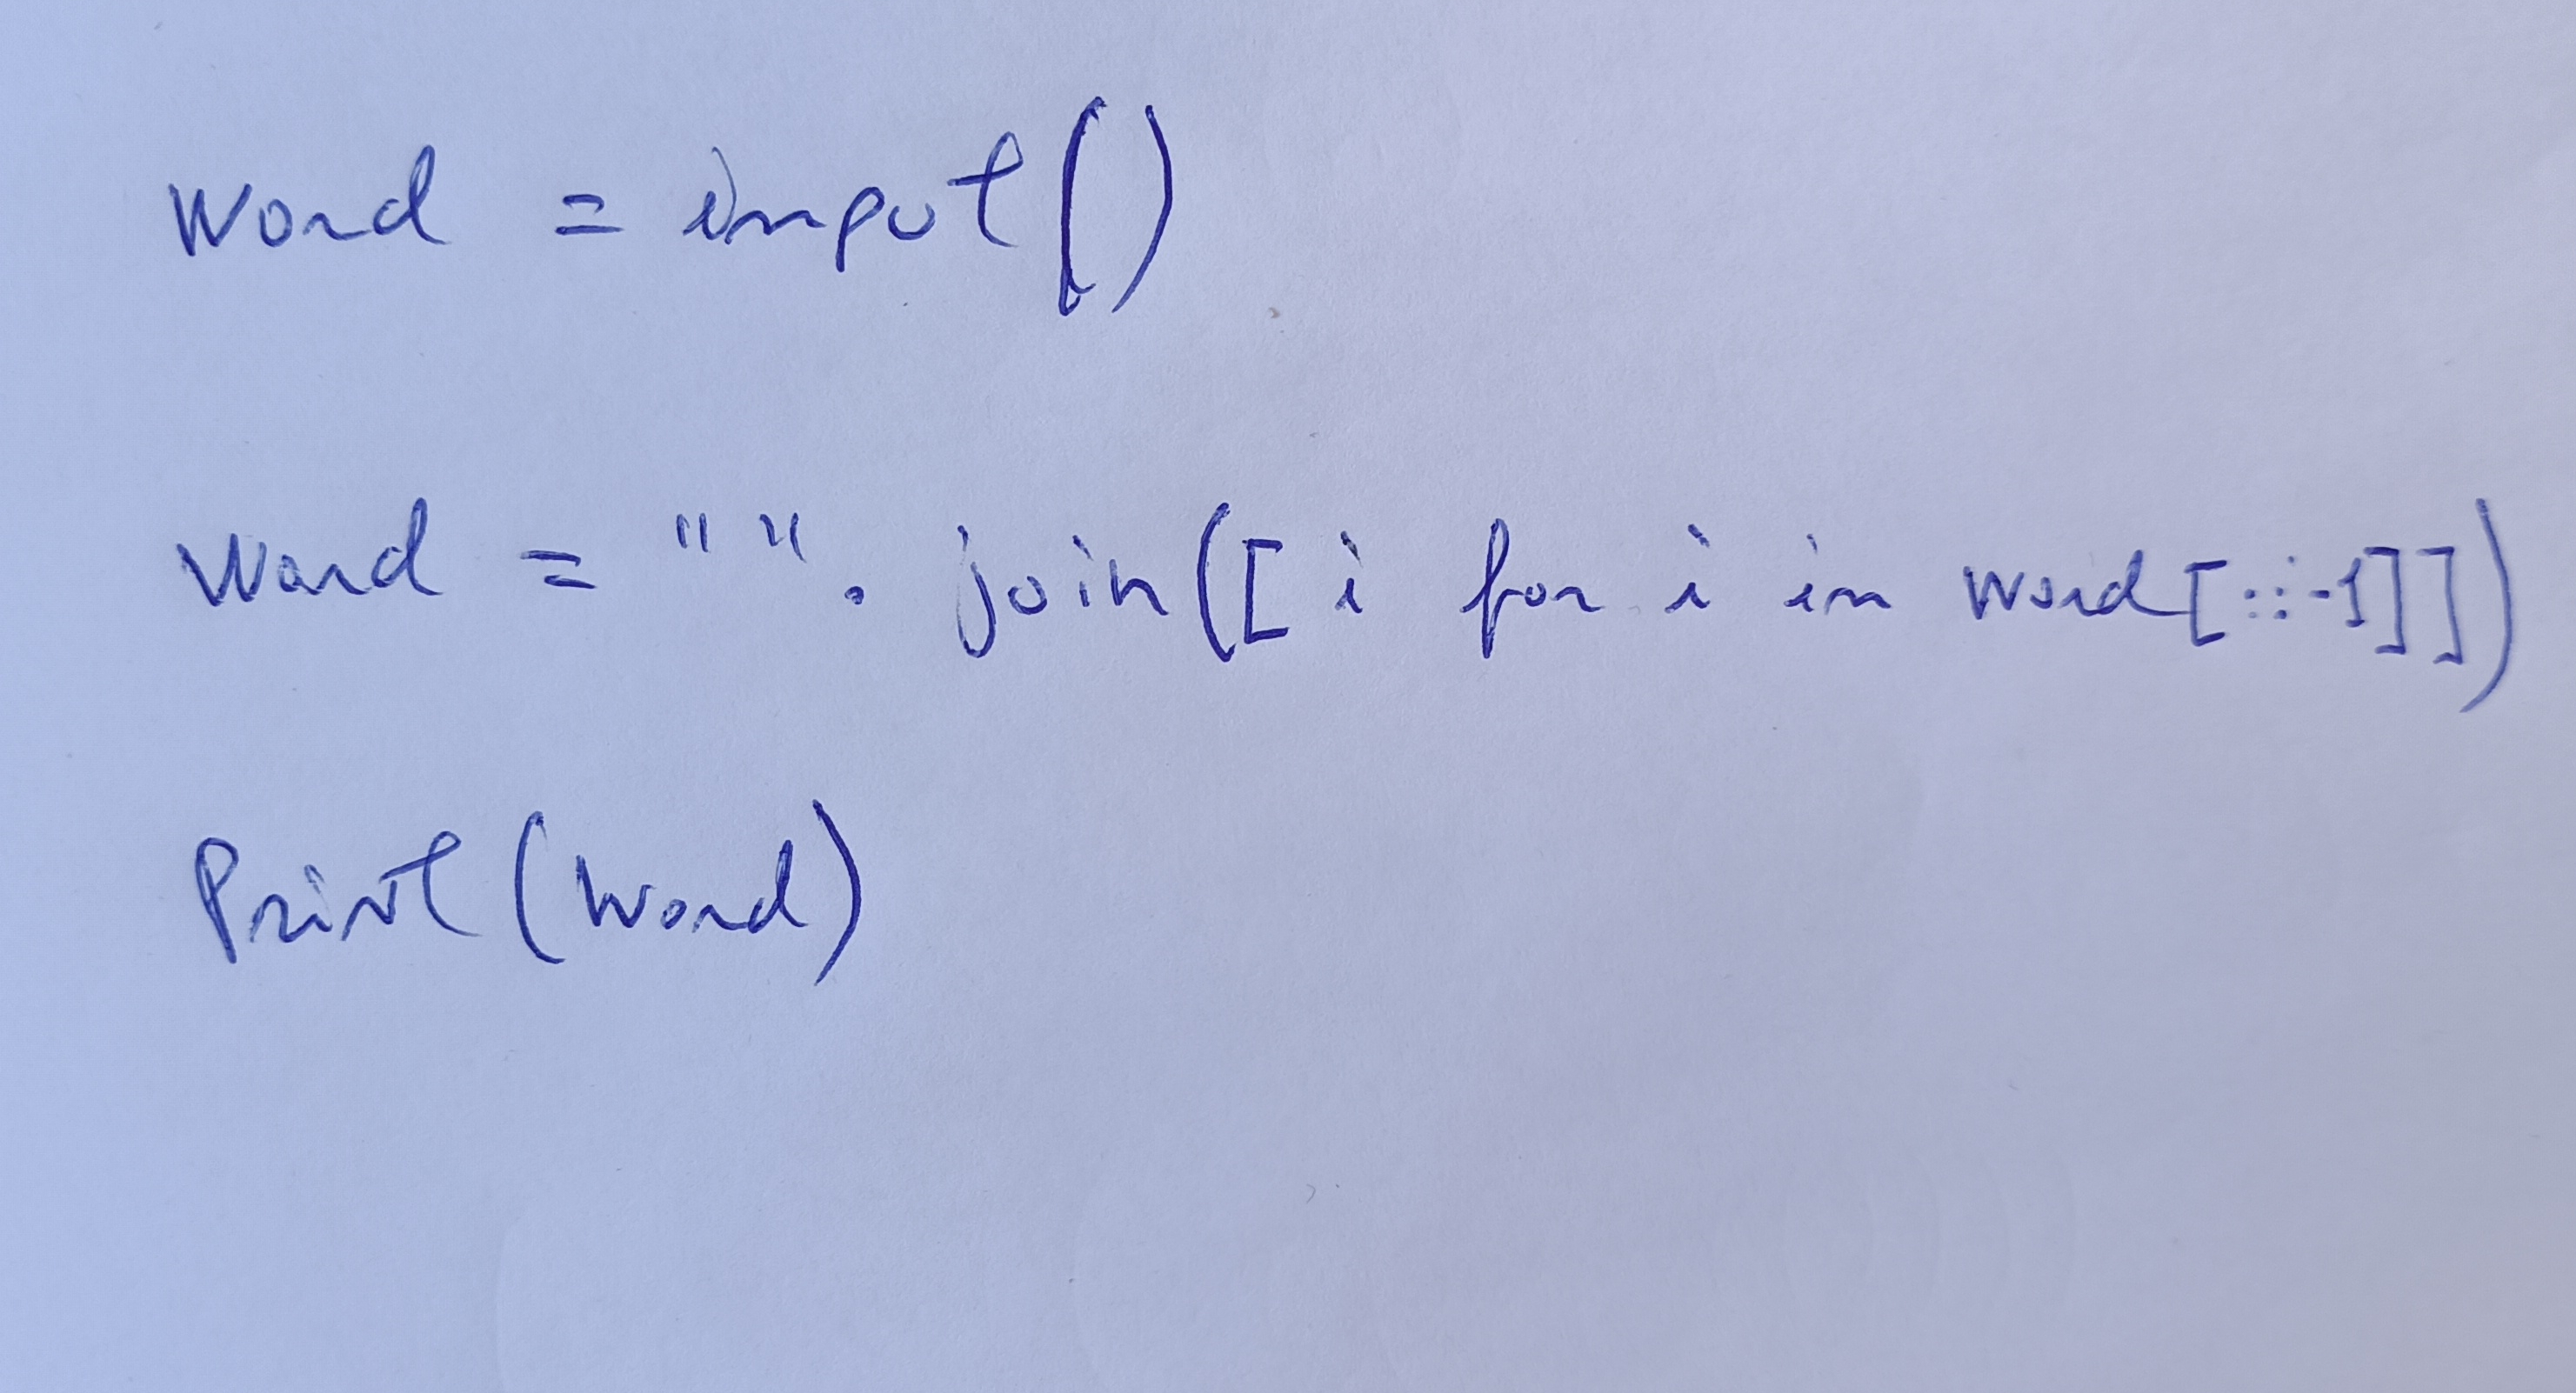 word = input()
word = "".join([i for i in word[::-1]])
Print(word)